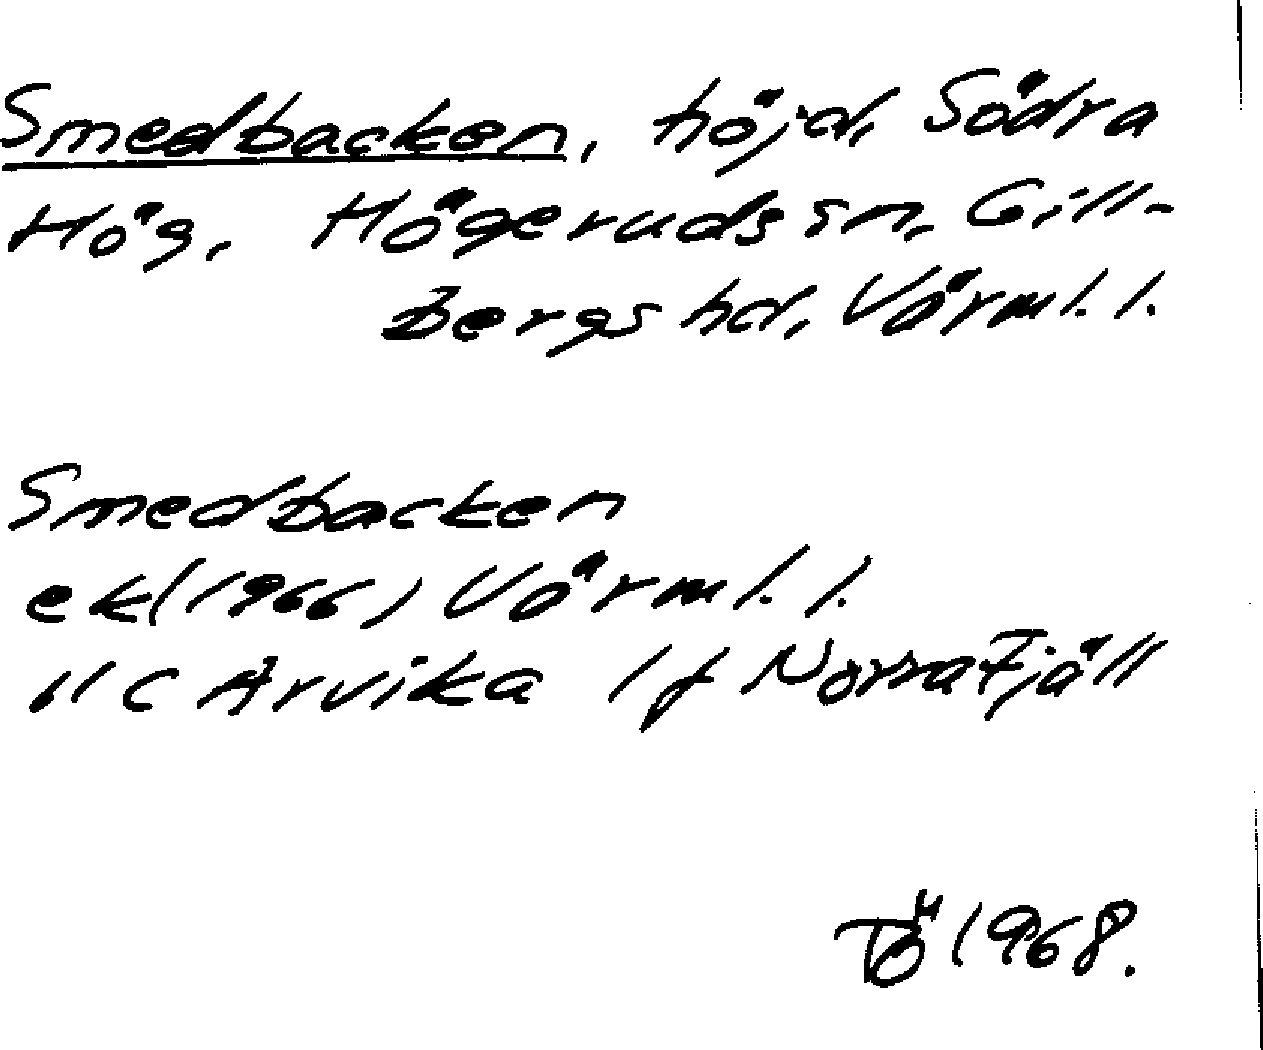 Smedbacken, höjd, Södra
Hög, Högeruds sn, Gill-
bergs hd, Värml. l.
Smedbacken
ek (1966) Värml. l.
11 C Arvika lf Norra Fjäll
TÖ 1968.